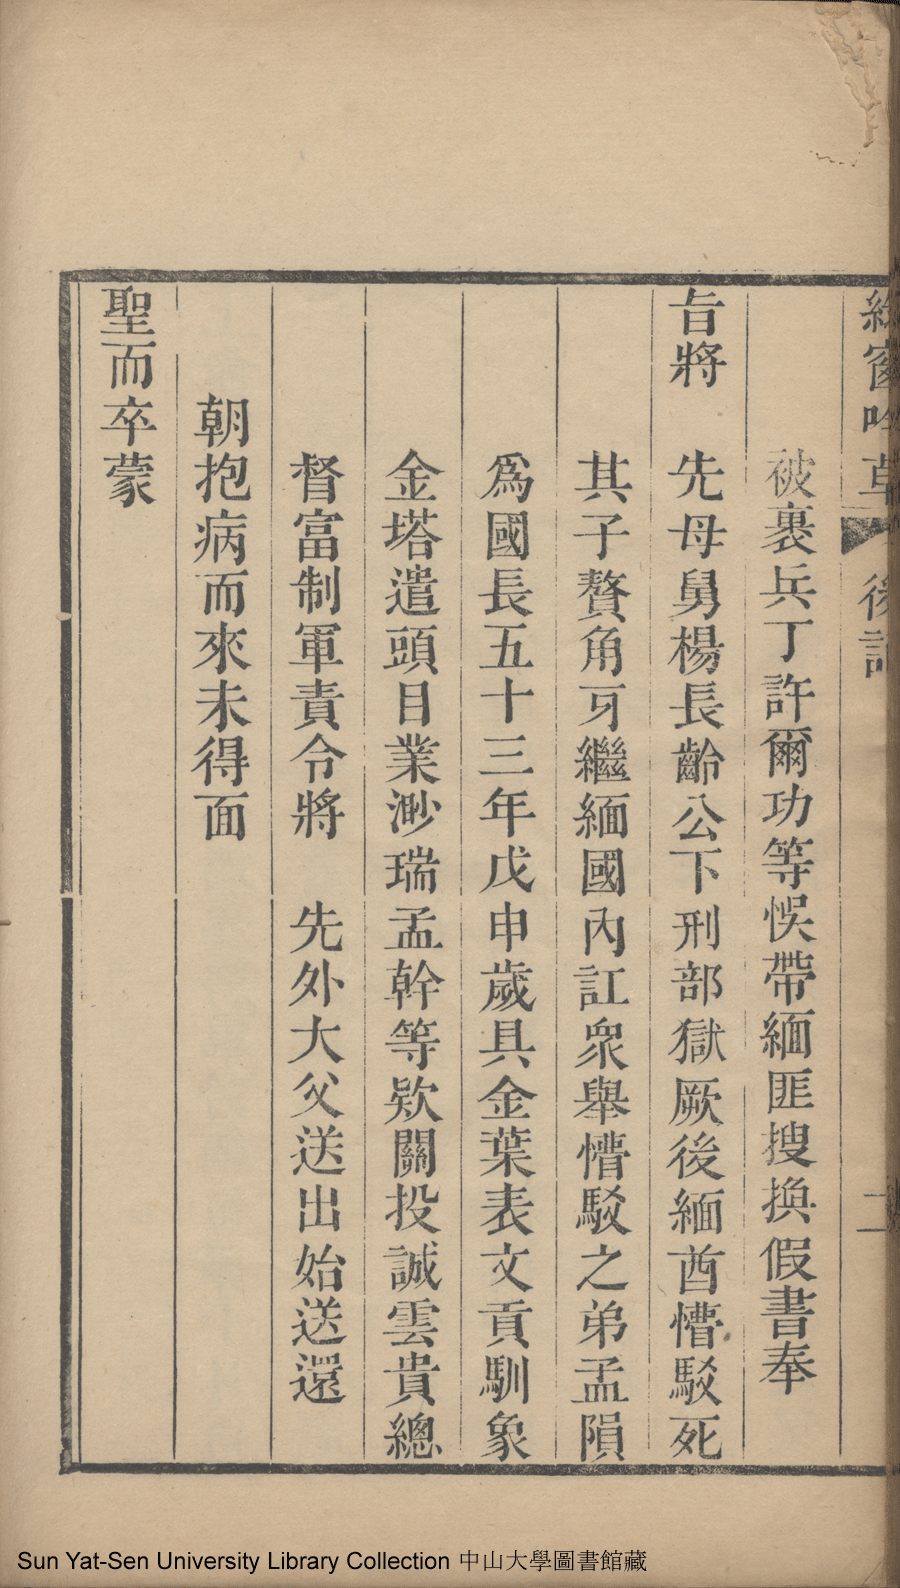 窗吟草 後記 二
被裹兵丁許爾功等悞帶緬匪搜換假書奉
旨將 先母舅楊長齡公下刑部獄厥後緬酋懵駁死
其子贅角牙繼緬國內訌衆舉懵駁之弟孟隕
爲國長五十三年戊申歲具金葉表文貢馴象
金塔遣頭目業渺瑞孟幹等欵關投誠雲貴總
督富制軍責令將 先外大父送出始送還
朝抱病而來未得面
聖而卒蒙
Sun Yat-Sen University Library Collection 中山大學圖書館藏